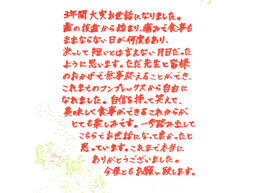 3年間大変お世話になりました。
歯の抜歯から始まり、痛みで食事も
ままならない日が何度もあり、
決っして短いとは言えない月日だった
ように思います。ただ先生と皆様
のおかげで無事終えることができ、
これまでのコンプレックスから自由に
なれました。自信を持って笑えて、
美味しく食事ができるこれからが
とても楽しみです。一歩踏み出して
こちらでお世話になって良かったと
思っています。これまで本当に
ありがとうございました。
今後ともお願い致します。